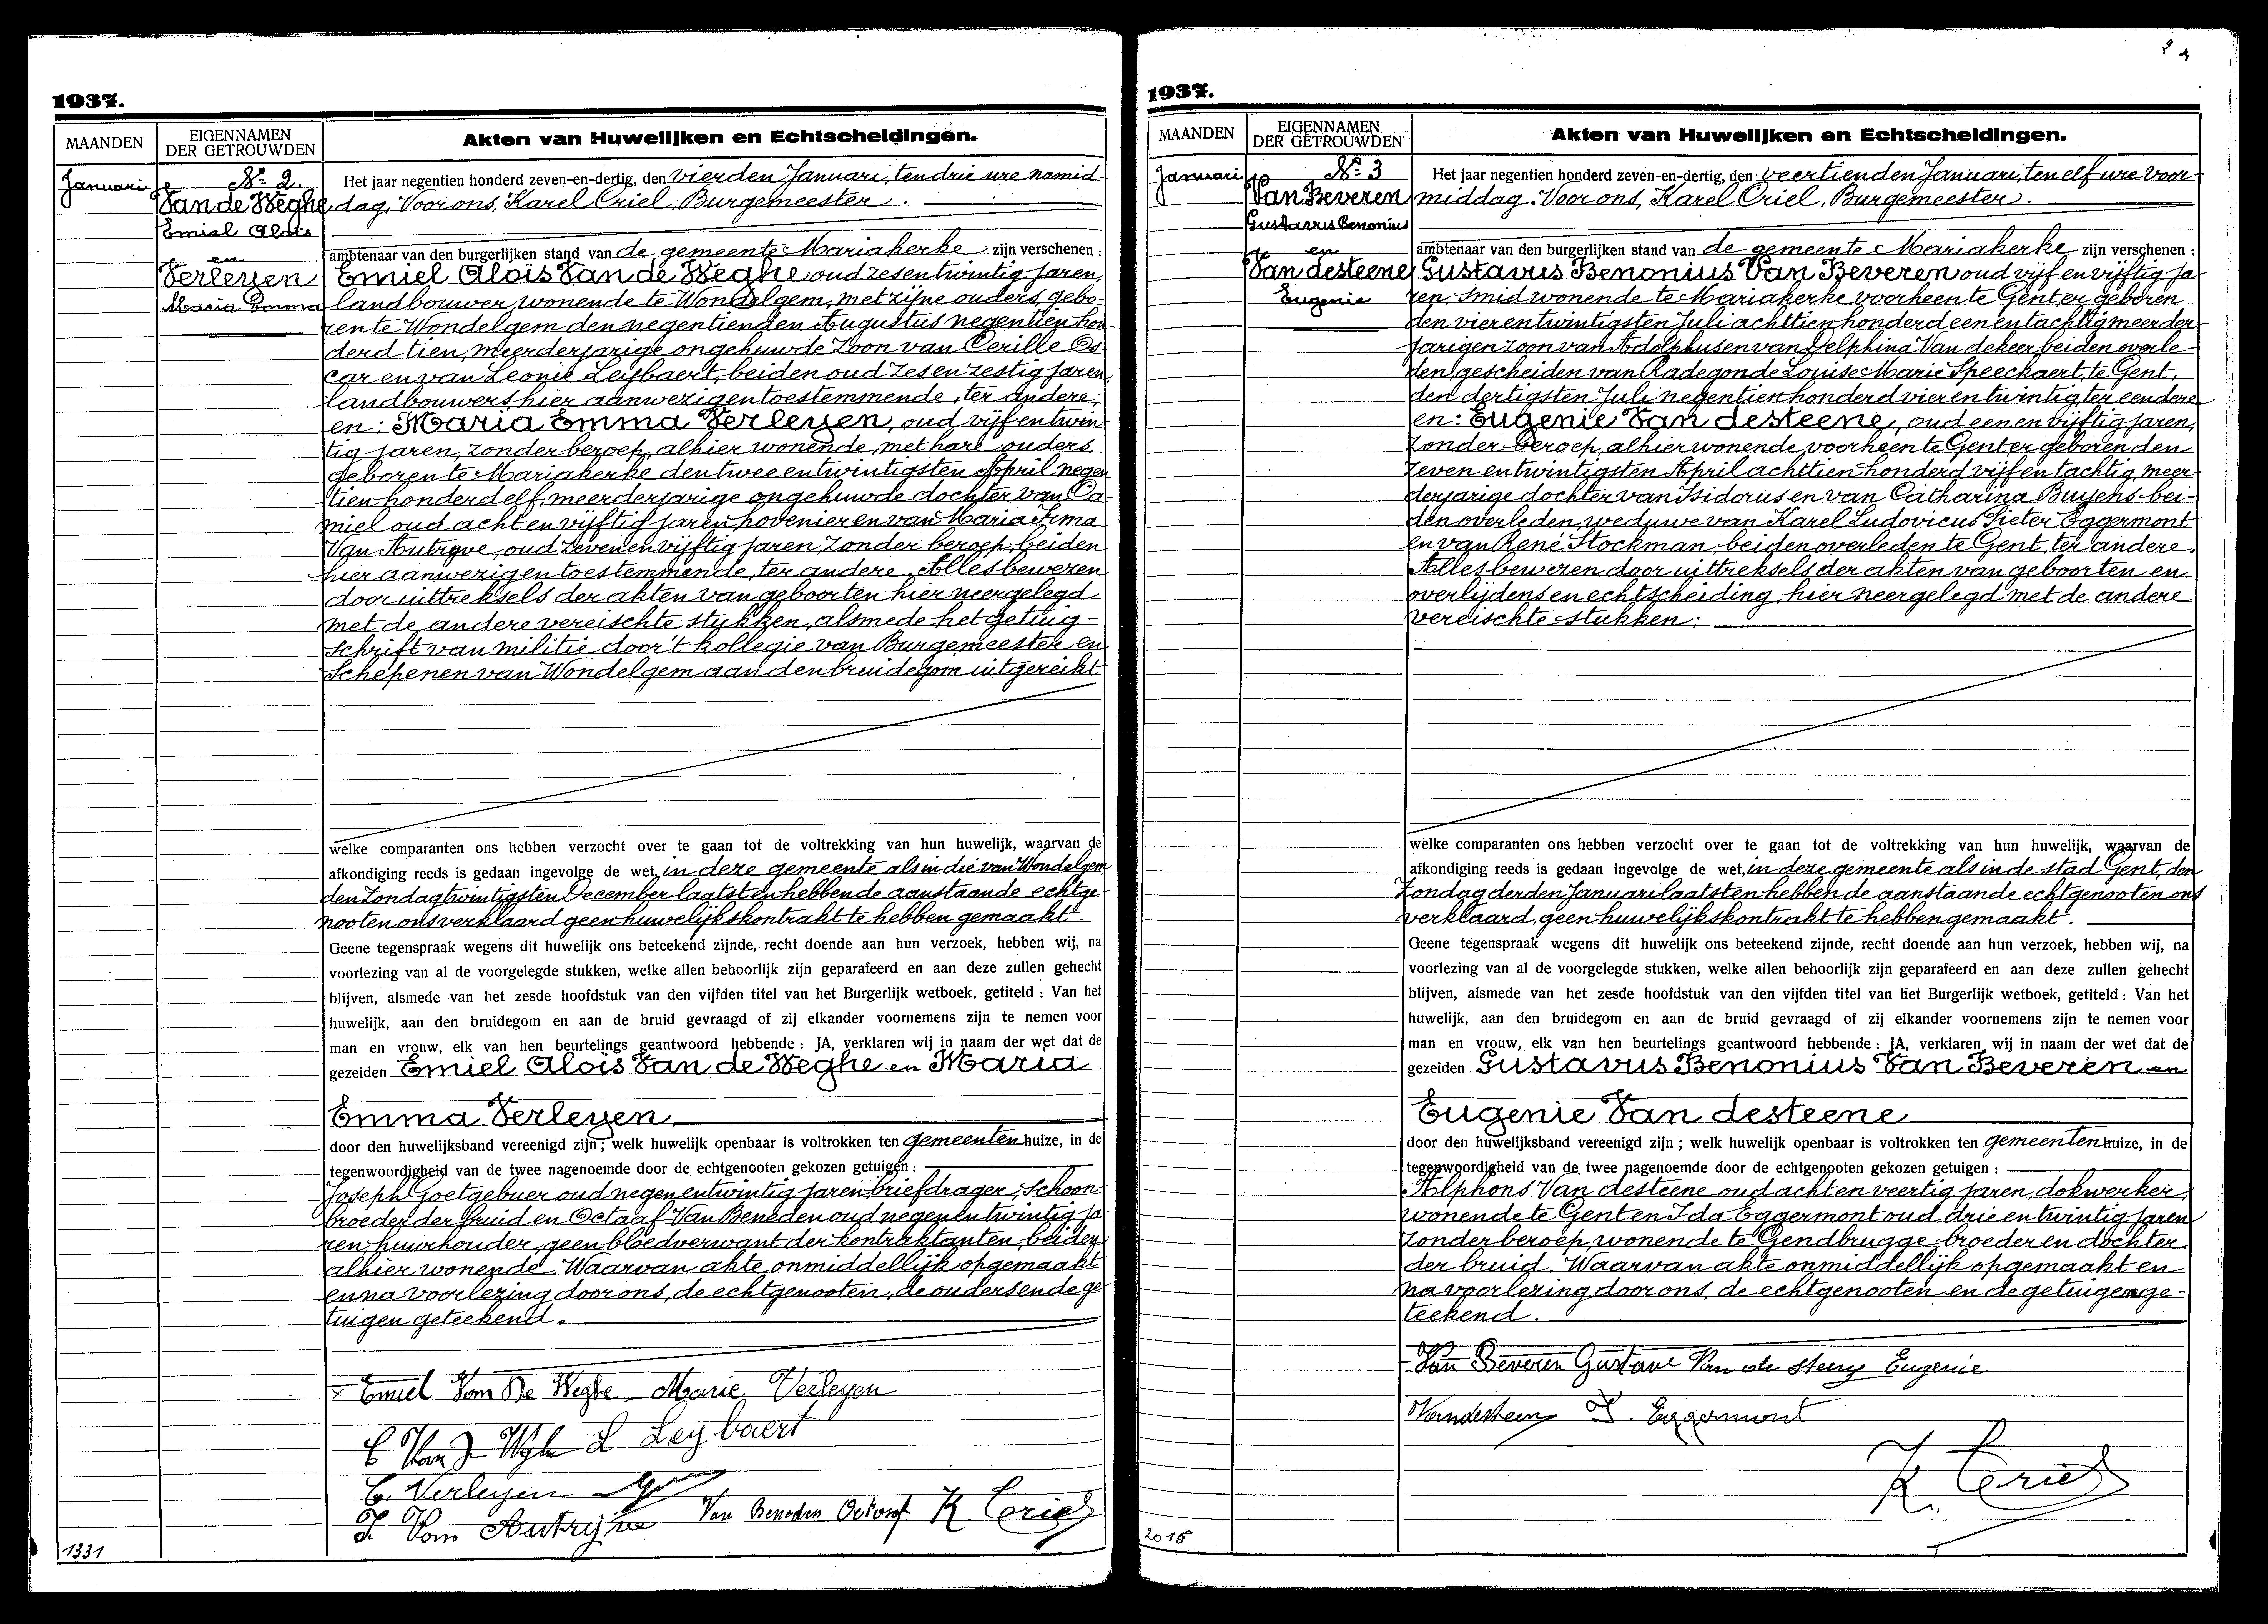 1937.
MAANDEN
EIGENNAMEN
DER GETROUWDEN
Akten van Huwelijken en Echtscheidingen.
Januari
No 2.
Van de Weghe
Emiel Aloïs
en
Verleyen
Maria Emma
Het jaar negentien honderd zeven-en-dertig, den vierden Januari, ten drie ure namid-
dag, Voor ons, Karel Criel, Burgemeester.
ambtenaar van den burgerlijken stand van de gemeente Mariakerke zijn verschenen :
Emiel Aloïs Van de Weghe oud zesentwintig jaren,
landbouwer, wonende te Wondelgem, met zijne ouders, gebo-
ren te Wondelgem den negentienden Augustus negentien hon-
derd tien, meerderjarige ongehuwde zoon van Cerille Os-
car en van Leonie Leijbaert, beiden oud zesenzestig jaren,
landbouwers, hier aanwezig en toestemmende, ter andere;
en: Maria Emma Verleyen, oud vijfentwin-
tig jaren, zonder beroep, alhier wonende, met hare ouders,
geboren te Mariakerke den tweeentwintigsten April negen-
tien honderd elf, meerderjarige ongehuwde dochter van Ca-
miel oud achtenvijftig jaren, hovenier en van Maria Irma
Van Autryve, oud zevenenvijftig jaren, zonder beroep, beiden
hier aanwezig en toestemmende, ter andere. Alles bewezen
door uittreksels der akten van geboorten hier neergelegd
met de andere vereischte stukken, alsmede het getuig-
schrift van militie door 't kollegie van Burgemeester en
Schepenen van Wondelgem aan den bruidegom uitgereikt
welke comparanten ons hebben verzocht over te gaan tot de voltrekking van hun huwelijk, waarvan de
afkondiging reeds is gedaan ingevolge de wet, in deze gemeente als in die van Wondelgem
den Zondag twintigsten December laatst en hebben de aanstaande echtge-
nooten ons verklaard geen huwelijkskontrakt te hebben gemaakt.
Geene tegenspraak wegens dit huwelijk ons beteekend zijnde, recht doende aan hun verzoek, hebben wij, na
voorlezing van al de voorgelegde stukken, welke allen behoorlijk zijn geparafeerd en aan deze zullen gehecht
blijven, alsmede van het zesde hoofdstuk van den vijfden titel van het Burgerlijk wetboek, getiteld : Van het
huwelijk, aan den bruidegom en aan de bruid gevraagd of zij elkander voornemens zijn te nemen voor
man en vrouw, elk van hen beurtelings geantwoord hebbende : JA, verklaren wij in naam der wet dat de
gezeiden Emiel Aloïs Van de Weghe en Maria
Emma Verleyen
door den huwelijksband vereenigd zijn ; welk huwelijk openbaar is voltrokken ten gemeentenhuize, in de
tegenwoordigheid van de twee nagenoemde door de echtgenooten gekozen getuigen :
Joseph Goetgebuer oud negenentwintig jaren briefdrager, schoon-
broeder der bruid en Octaaf Van Beneden oud negenentwintig ja-
ren, huurhouder, geen bloedverwant der kontraktanten, beiden
alhier wonende. Waarvan akte onmiddellijk opgemaakt
en na voorlezing door ons, de echtgenooten, de ouders en de ge-
tuigen geteekend.
x Emiel Van De Weghe Marie Verleyen
C Van D Weghe L Leybaert
C. Verleyen
I. Van Autrijve Van Beneden Octaaf K. Criel
1331
1937.
MAANDEN
EIGENNAMEN
DER GETROUWDEN
Akten van Huwelijken en Echtscheidingen.
Januari
No 3
Van Beveren
Gustavus Benonius
en
Van desteene
Eugenie
Het jaar negentien honderd zeven-en-dertig, den veertienden Januari, ten elf ure voor-
middag. Voor ons, Karel Criel, Burgemeester.
ambtenaar van den burgerlijken stand van de gemeente Mariakerke zijn verschenen :
Gustavus Benonius Van Beveren oud vijfenvijftig ja-
ren, smid wonende te Mariakerke voorheen te Gent er geboren
den vierentwintigsten Juli achttien honderd eenentachtig meerder-
jarigen zoon van Adolphus en van Delphina Van dekeer beiden overle-
den, gescheiden van Radegonde Louise Marie Speeckaert, te Gent,
den dertigsten Juli negentien honderd vierentwintig, ter eendere
en: Eugenie Van desteene, oud eenenvijftig jaren,
zonder beroep, alhier wonende voorheen te Gent er geboren den
zevenentwintigsten April achttien honderd vijfentachtig, meer-
derjarige dochter van Isidorus en van Catharina Buyens bei-
den overleden, weduwe van Karel Ludovicus Pieter Eggermont
en van René Stockman, beiden overleden te Gent, ter andere.
Alles bewezen door uittreksels der akten van geboorten en
overlijdens en echtscheiding, hier neergelegd met de andere
vereischte stukken:
welke comparanten ons hebben verzocht over te gaan tot de voltrekking van hun huwelijk, waarvan de
afkondiging reeds is gedaan ingevolge de wet, in deze gemeente als in de stad Gent, den
Zondag derden Januari laatst en hebben de aanstaande echtgenooten ons
verklaard geen huwelijkskontrakt te hebben gemaakt.
Geene tegenspraak wegens dit huwelijk ons beteekend zijnde, recht doende aan hun verzoek, hebben wij, na
voorlezing van al de voorgelegde stukken, welke allen behoorlijk zijn geparafeerd en aan deze zullen gehecht
blijven, alsmede van het zesde hoofdstuk van den vijfden titel van het Burgerlijk wetboek, getiteld : Van het
huwelijk, aan den bruidegom en aan de bruid gevraagd of zij elkander voornemens zijn te nemen voor
man en vrouw, elk van hen beurtelings geantwoord hebbende : JA, verklaren wij in naam der wet dat de
gezeiden Gustavus Benonius Van Beveren en
Eugenie Van desteene
door den huwelijksband vereenigd zijn ; welk huwelijk openbaar is voltrokken ten gemeentenhuize, in de
tegenwoordigheid van de twee nagenoemde door de echtgenooten gekozen getuigen :
Alphons Van desteene oud achtenveertig jaren, dokwerker,
wonende te Gent en Ida Eggermont oud drieentwintig jaren
zonder beroep, wonende te Gendbrugge broeder en dochter
der bruid. Waarvan akte onmiddellijk opgemaakt en
na voorlezing door ons, de echtgenooten en de getuigen ge-
teekend.
Van Beveren Gustave Van de steene Eugenie
Vandesteene I. Eggermont
K. Criel
2015